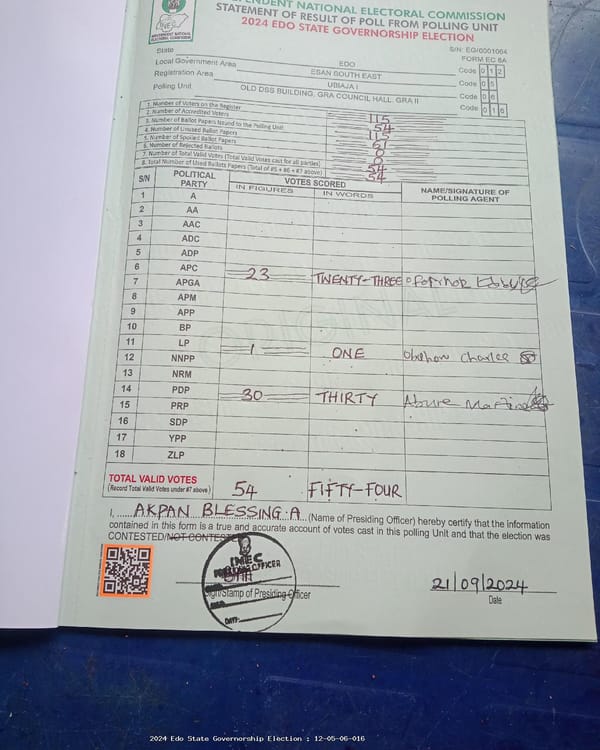 PENDENT NATIONAL ELECTORAL COMMISSION
STATEMENT OF RESULT OF POLL FROM POLLING UNIT
2024 EDO STATE GOVERNORSHIP ELECTION
S/N: EG/0001064
FORM EC 8A
State EDO Code 1 2
Local Government Area ESAN SOUTH EAST Code 0 5
Registration Area UBIAJA I Code 0 6
Polling Unit OLD DSS BUILDING, GRA COUNCIL HALL, GRA II Code 0 1 6
1. Number of Voters on the Register 115
2. Number of Accredited Voters 54
3. Number of Ballot Papers Issued to the Polling Unit 115
4. Number of Unused Ballot Papers 61
5. Number of Spoiled Ballot Papers 0
6. Number of Rejected Ballots 0
7. Number of Total Valid Votes (Total Valid Votes cast for all parties) 54
8. Total Number of Used Ballots Papers (Total of #5 + #6 + #7 above) 54
S/N POLITICAL PARTY VOTES SCORED NAME/SIGNATURE OF POLLING AGENT
IN FIGURES IN WORDS
1 A
2 AA
3 AAC
4 ADC
5 ADP
6 APC 23 TWENTY-THREE
7 APGA
8 APM
9 APP
10 BP
11 LP 1 ONE Charles
12 NNPP
13 NRM
14 PDP 30 THIRTY Abure
15 PRP
16 SDP
17 YPP
18 ZLP
TOTAL VALID VOTES 54 FIFTY-FOUR
(Record Total Valid Votes under #7 above)
I, AKPAN BLESSING. A (Name of Presiding Officer) hereby certify that the information
contained in this form is a true and accurate account of votes cast in this polling Unit and that the election was
CONTESTED/NOT CONTESTED
INEC
OFFICER
DATE:
Sign/Stamp of Presiding Officer
21/09/2024
Date
2024 Edo State Governorship Election : 12-05-06-016